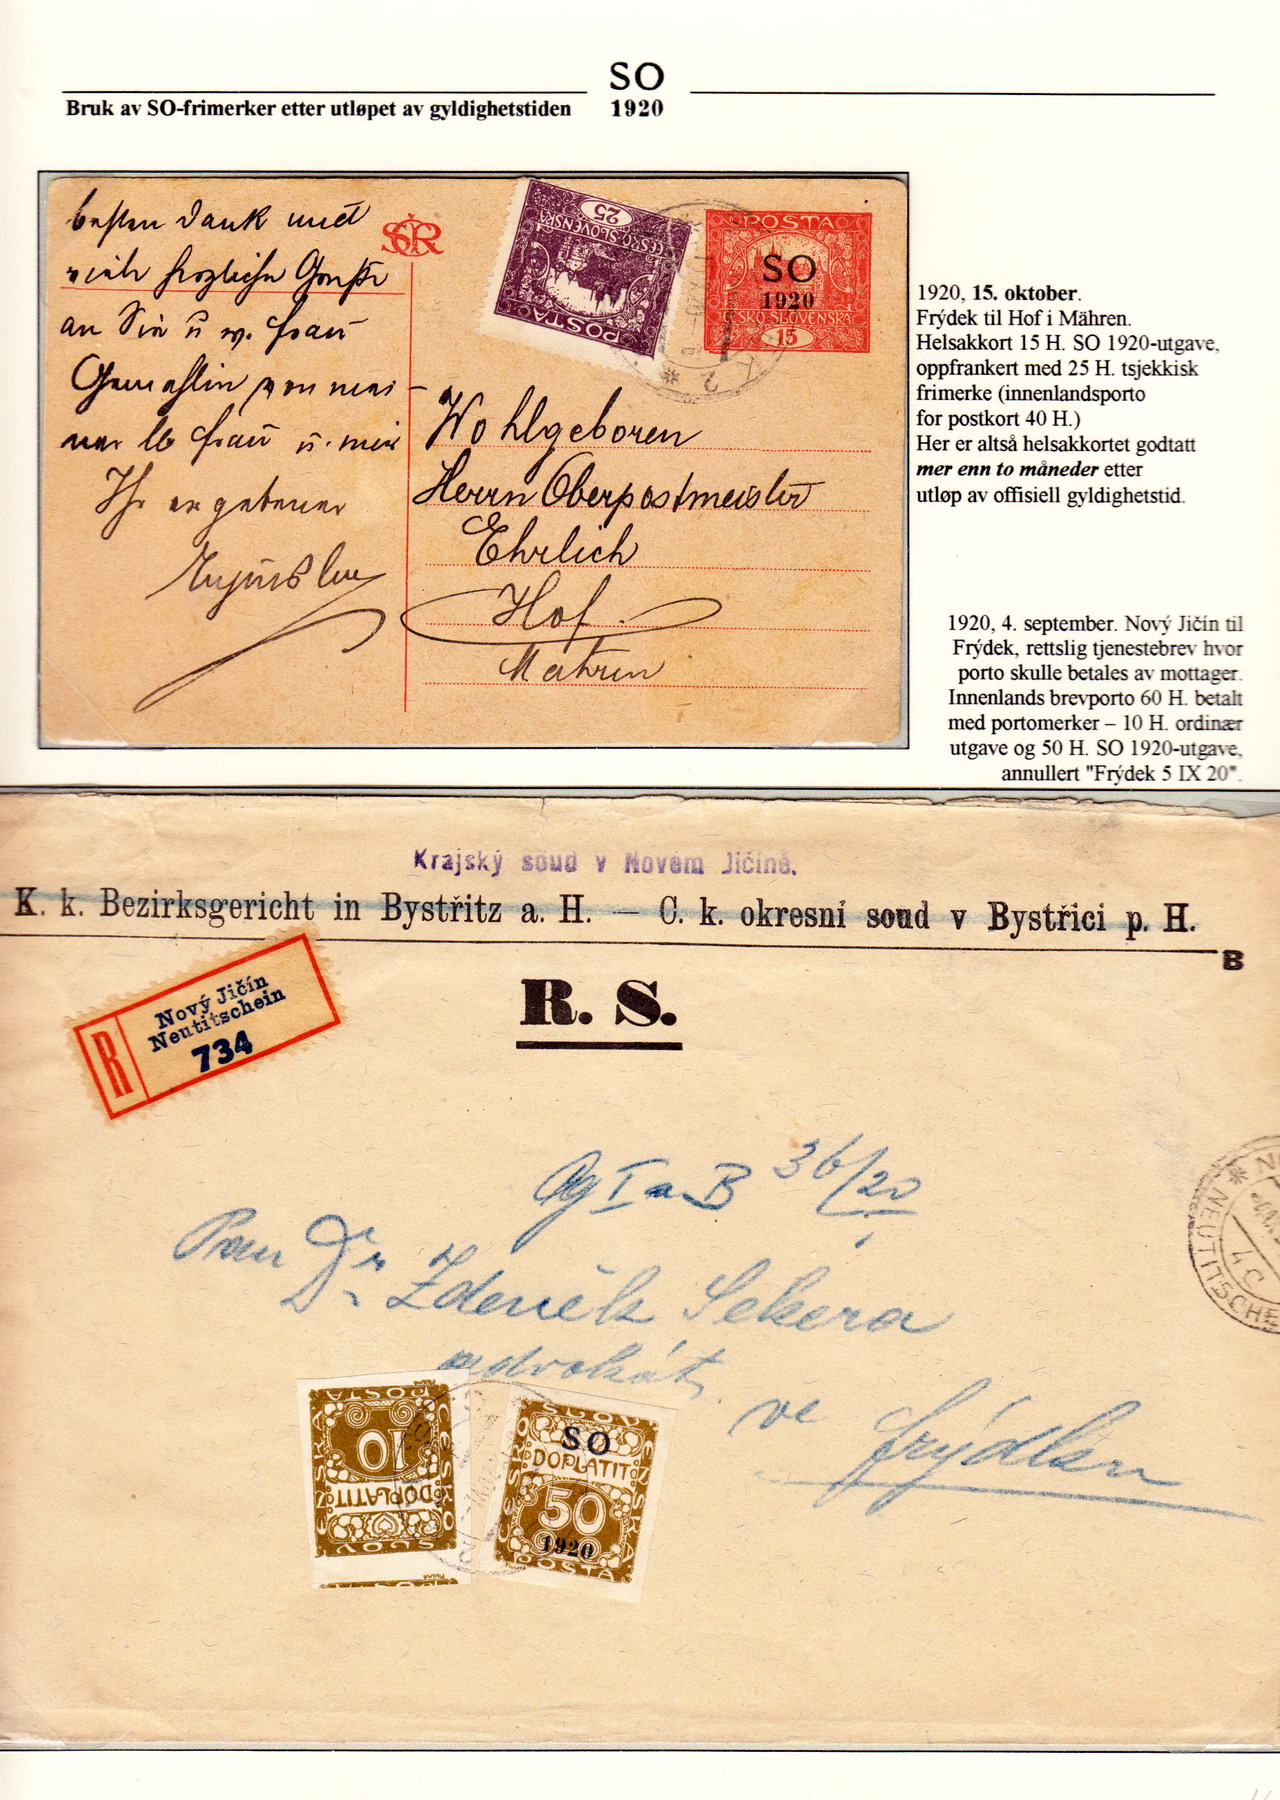 SO
1920
Bruk av SO-frimerker etter utløpet av gyldighetstiden
besten Dank und
viele herzliche Grüße
an Sie u w. Frau
Gemahlin von mei-
ner lb Frau u. mir
Ihr ergebener
SČR
25
ČESKO-SLOVENSKÁ
POSTA
POSTA
SO
1920
ČESKO-SLOVENSKÁ
15
Wohlgeboren
Herrn Oberpostmeister
Ehrlich
Hof
Mähren
1920, 15. oktober.
Frýdek til Hof i Mähren.
Helsakkort 15 H. SO 1920-utgave,
oppfrankert med 25 H. tsjekkisk
frimerke (innenlandsporto
for postkort 40 H.)
Her er altså helsakkortet godtatt
mer enn to måneder etter
utløp av offisiell gyldighetstid.
1920, 4. september. Nový Jičín til
Frýdek, rettslig tjenestebrev hvor
porto skulle betales av mottager.
Innenlands brevporto 60 H. betalt
med portomerker – 10 H. ordinær
utgave og 50 H. SO 1920-utgave,
annullert "Frýdek 5 IX 20".
Krajský soud v Novém Jičíně.
K. k. Bezirksgericht in Bystřitz a. H. — C. k. okresní soud v Bystřici p. H.
B
R. S.
R
Nový Jičín
Neutitschein
734
Cg I a B 36/20
Pan Dr
Dr Zdeněk Sekera
advokát
ve Frýdku
NEUTITSCHE
POSTA
ČESKO
SLOVENSKÁ
10
DOPLATIT
SLOVENSKÁ
ČESKO
SO
DOPLATIT
50
1920
POSTA